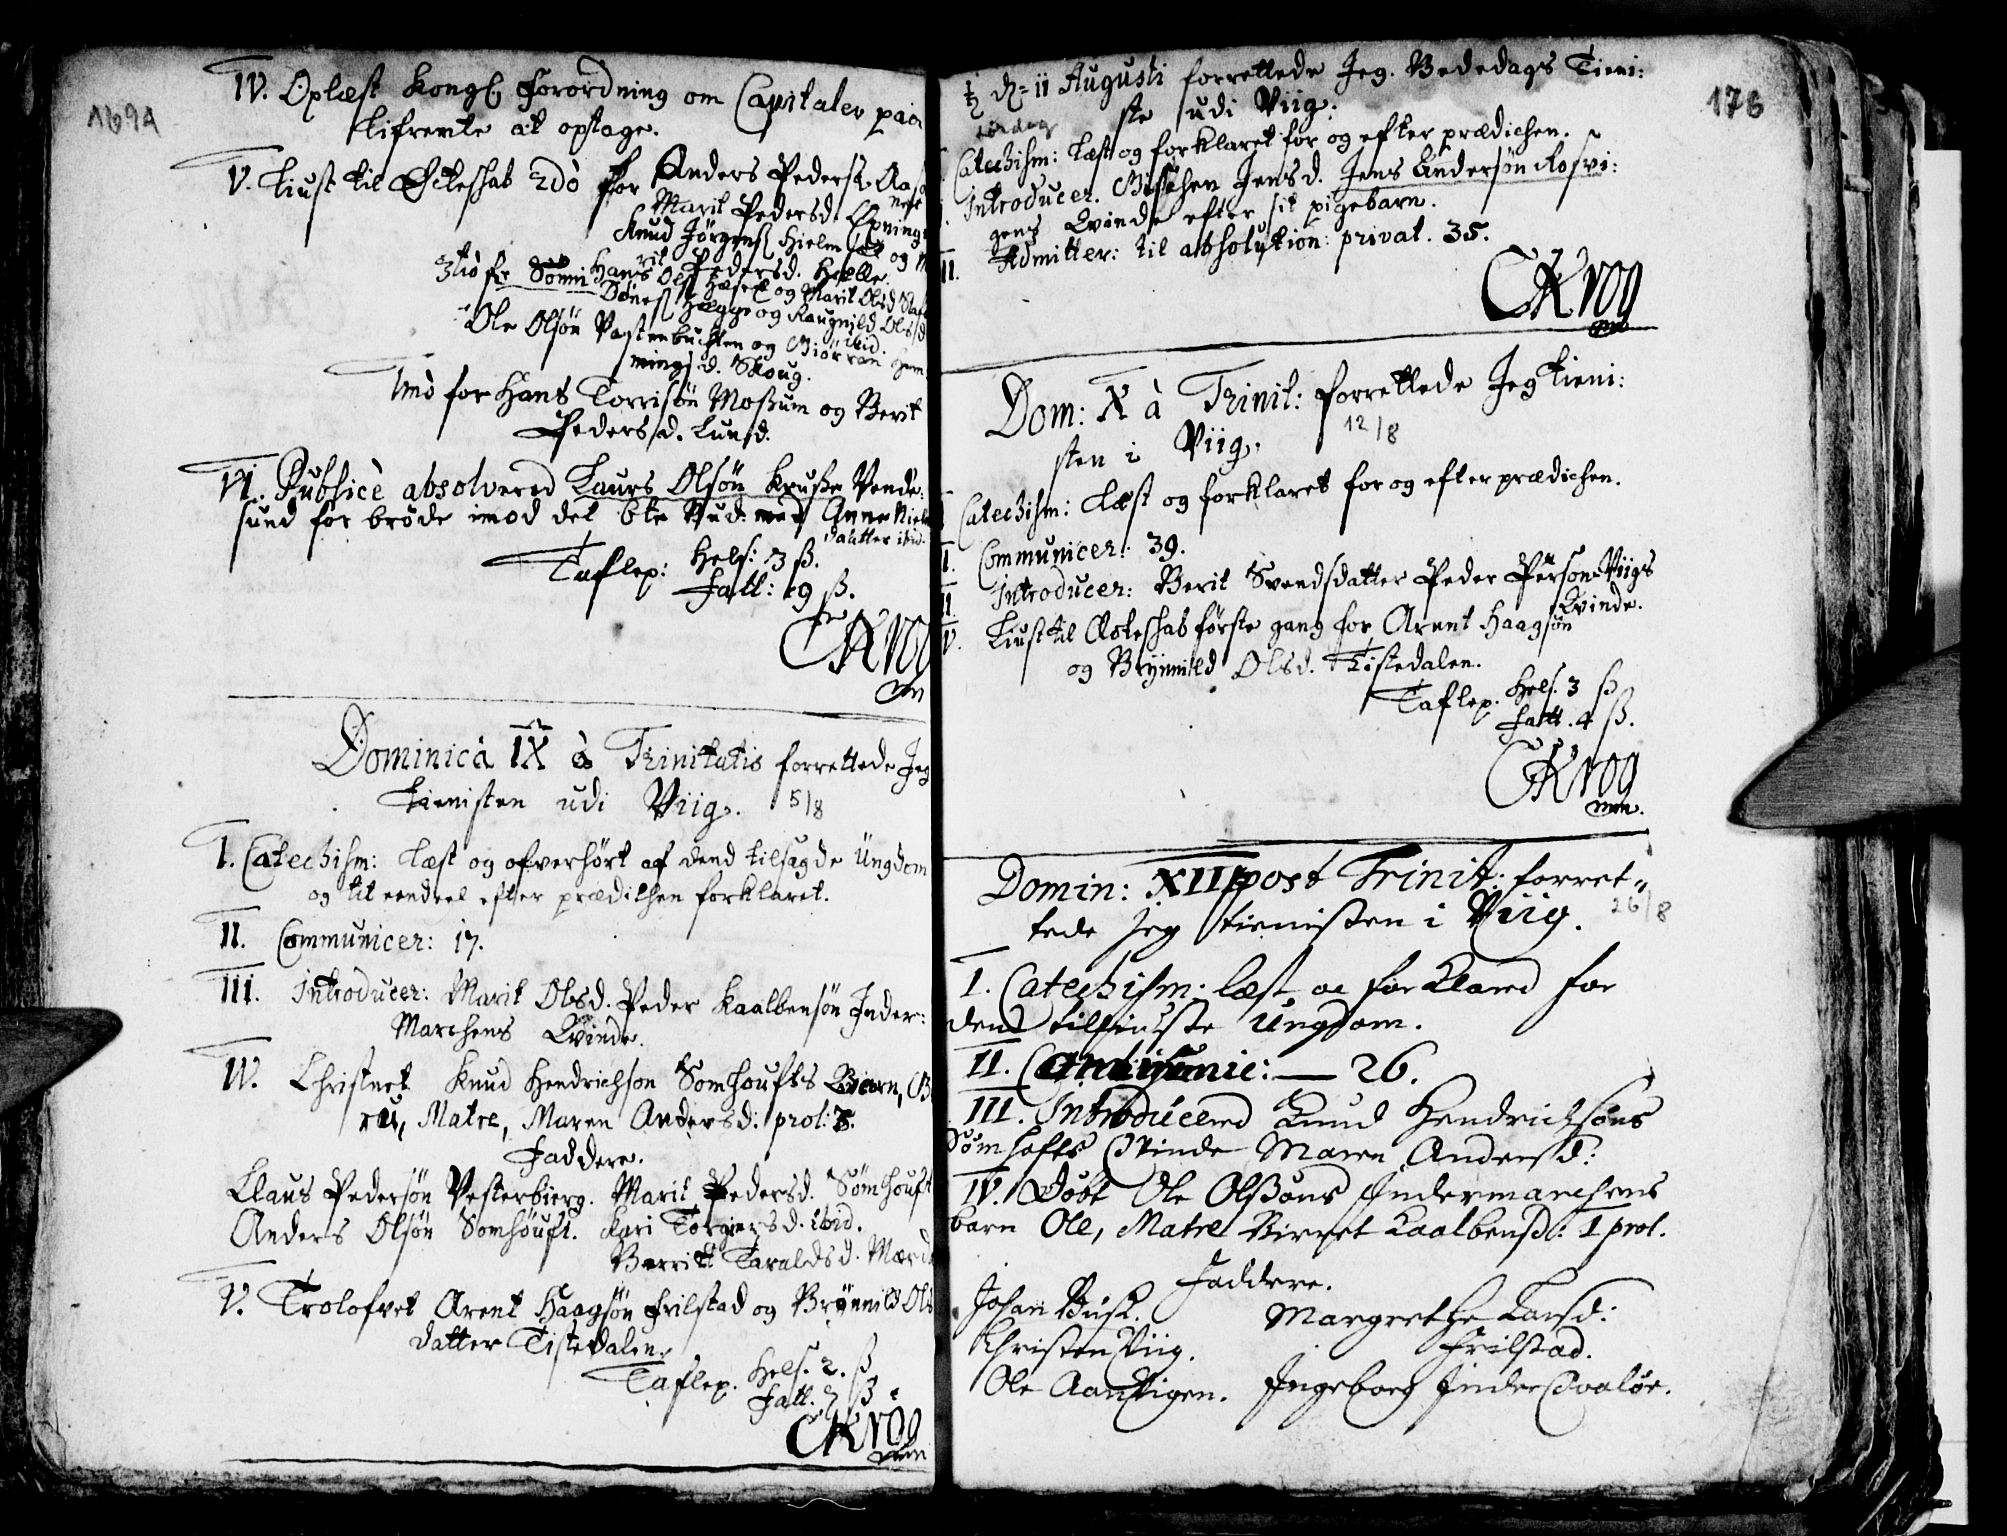 1694
IV. Oplæst Kongl: Forordning om Capitaler paa
Lifrente at optage.
V. Liust til Ecteshab 2dò for Anders Peders: Aas
Marit Pedersd. Opning
Knud Jörgens: Hielm og M
rit Pedersd. Helle.
3tiò for Hans Ols: Hæsel og Marit Olsd
Dönes: Hegge og Raugnild Olsd
ibid.
Ole Olsön Vastenbuchten og Giörran Hem
mingsd. Skoug.
Imò for Hans Torrisön Moßum og Berit
Pedersd. Lund.
VI. Publicè absolvered Laurs Olsön Kruße Vende:
sund for bröde imod det 6te Bud: med Anne Niels
datter ibid.
Taflep: Hels: 3 ß.
Fatt: 19 ß.
CKrog
mn
Dominicâ IX à Trinitatis forrettede Jeg
tienisten udi Viig. 5/8
I. Catechism: Læst og ofverhört af dend tilsagde Ungdom
og til eendeel efter prædichen forklaret.
II. Communicer: 17.
III. Introducer: Marit Olsd. Peder Kaalbensön Inder:
Marchens Qvinde.
IV. Christnet Knud Hendrichsön Somhoufts Barn,
Matre, Maren Andersd: prol: 3.
Faddere.
Claus Pedersön Vesterbierg. Marit Pedersd. Sömhouft
Anders Olsön Somhöuft. Kari Torgiersd. ibid.
Berritt Taraldsd. Mærd
V. Trolofvet Arent Haagsön Frilstad og Brynnild Ols
datter Tistedalen.
Taflep. Hels. 2. ß
Fatt: 7 ß
CKrog
mn
176
♃ D: 11 Augusti forrettede Jeg Bededags Tieni:
ste udi Viig.
Catechism: Læst og forklaret for og efter prædichen.
Introducer. Jensd. Jens Andersön Rosvi:
gens Qvinde efter sit pigebarn.
II. Admitter: til absolution: privat. 35.
CKrog
mn
Dom: X à Trinit: forrettede Jeg tieni:
sten i Viig. 12/8
Catechism: Læst og forklaret for og efter prædichen.
Communicer: 39.
Introducer: Berit Svendsdatter Peder Persons Viigs
Qvinde.
IV. Liust til Ecteshab förste gang for Arent Haagsön
og Brynnild Olsd. Tistedalen.
Taflep. Hels. 3 ß
Fatt. 4 ß.
CKrog
mn.
Domin: XII post Trinit: forret-
tede Jeg tienisten i Viig. 26/8
I. Catechism: læst oc forklared for
dend tilliuste Ungdom.
II. Communic: — 26.
III. Introducered Knud Hendrichsöns
Sömhofts Qvinde Maren Andersd:
IV. Döbt Ole Olßöns Indermarchens
barn Ole, Matre Birret Kaalbensd: 1 prol.
Faddere.
Johan Busk. Margrethe Larsd:
Christen Viig. Frilstad.
Ole Aanvigen. Ingeborg Inder Qvalöe.